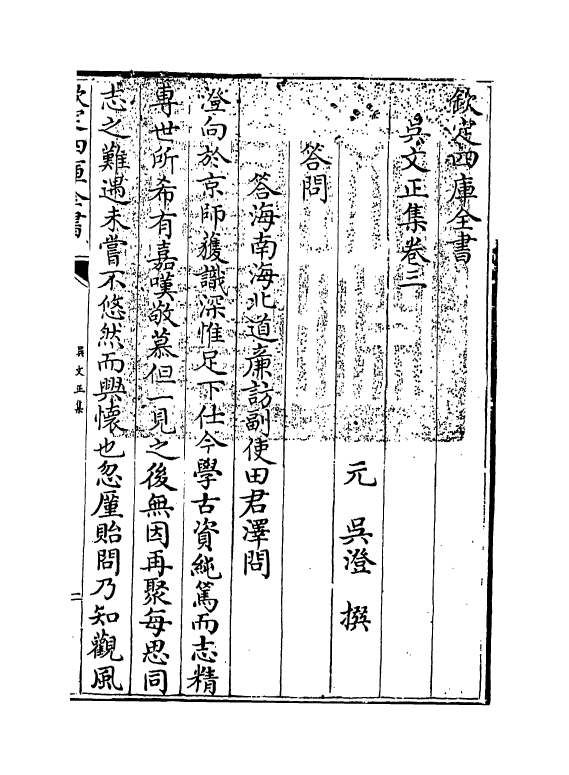 欽定四庫全書
吳文正集卷三
元　吳澄　撰
答問
答海南海北道廉訪副使田君澤問
澄向於京師獲識深惟足下仕今學古資純篤而志精
專世所希有嘉嘆敬慕但一見之後無因再聚每思同
志之難遇未嘗不悠然而興懷也忽厪貽問乃知觀風
欽定四庫全書
吳文正集